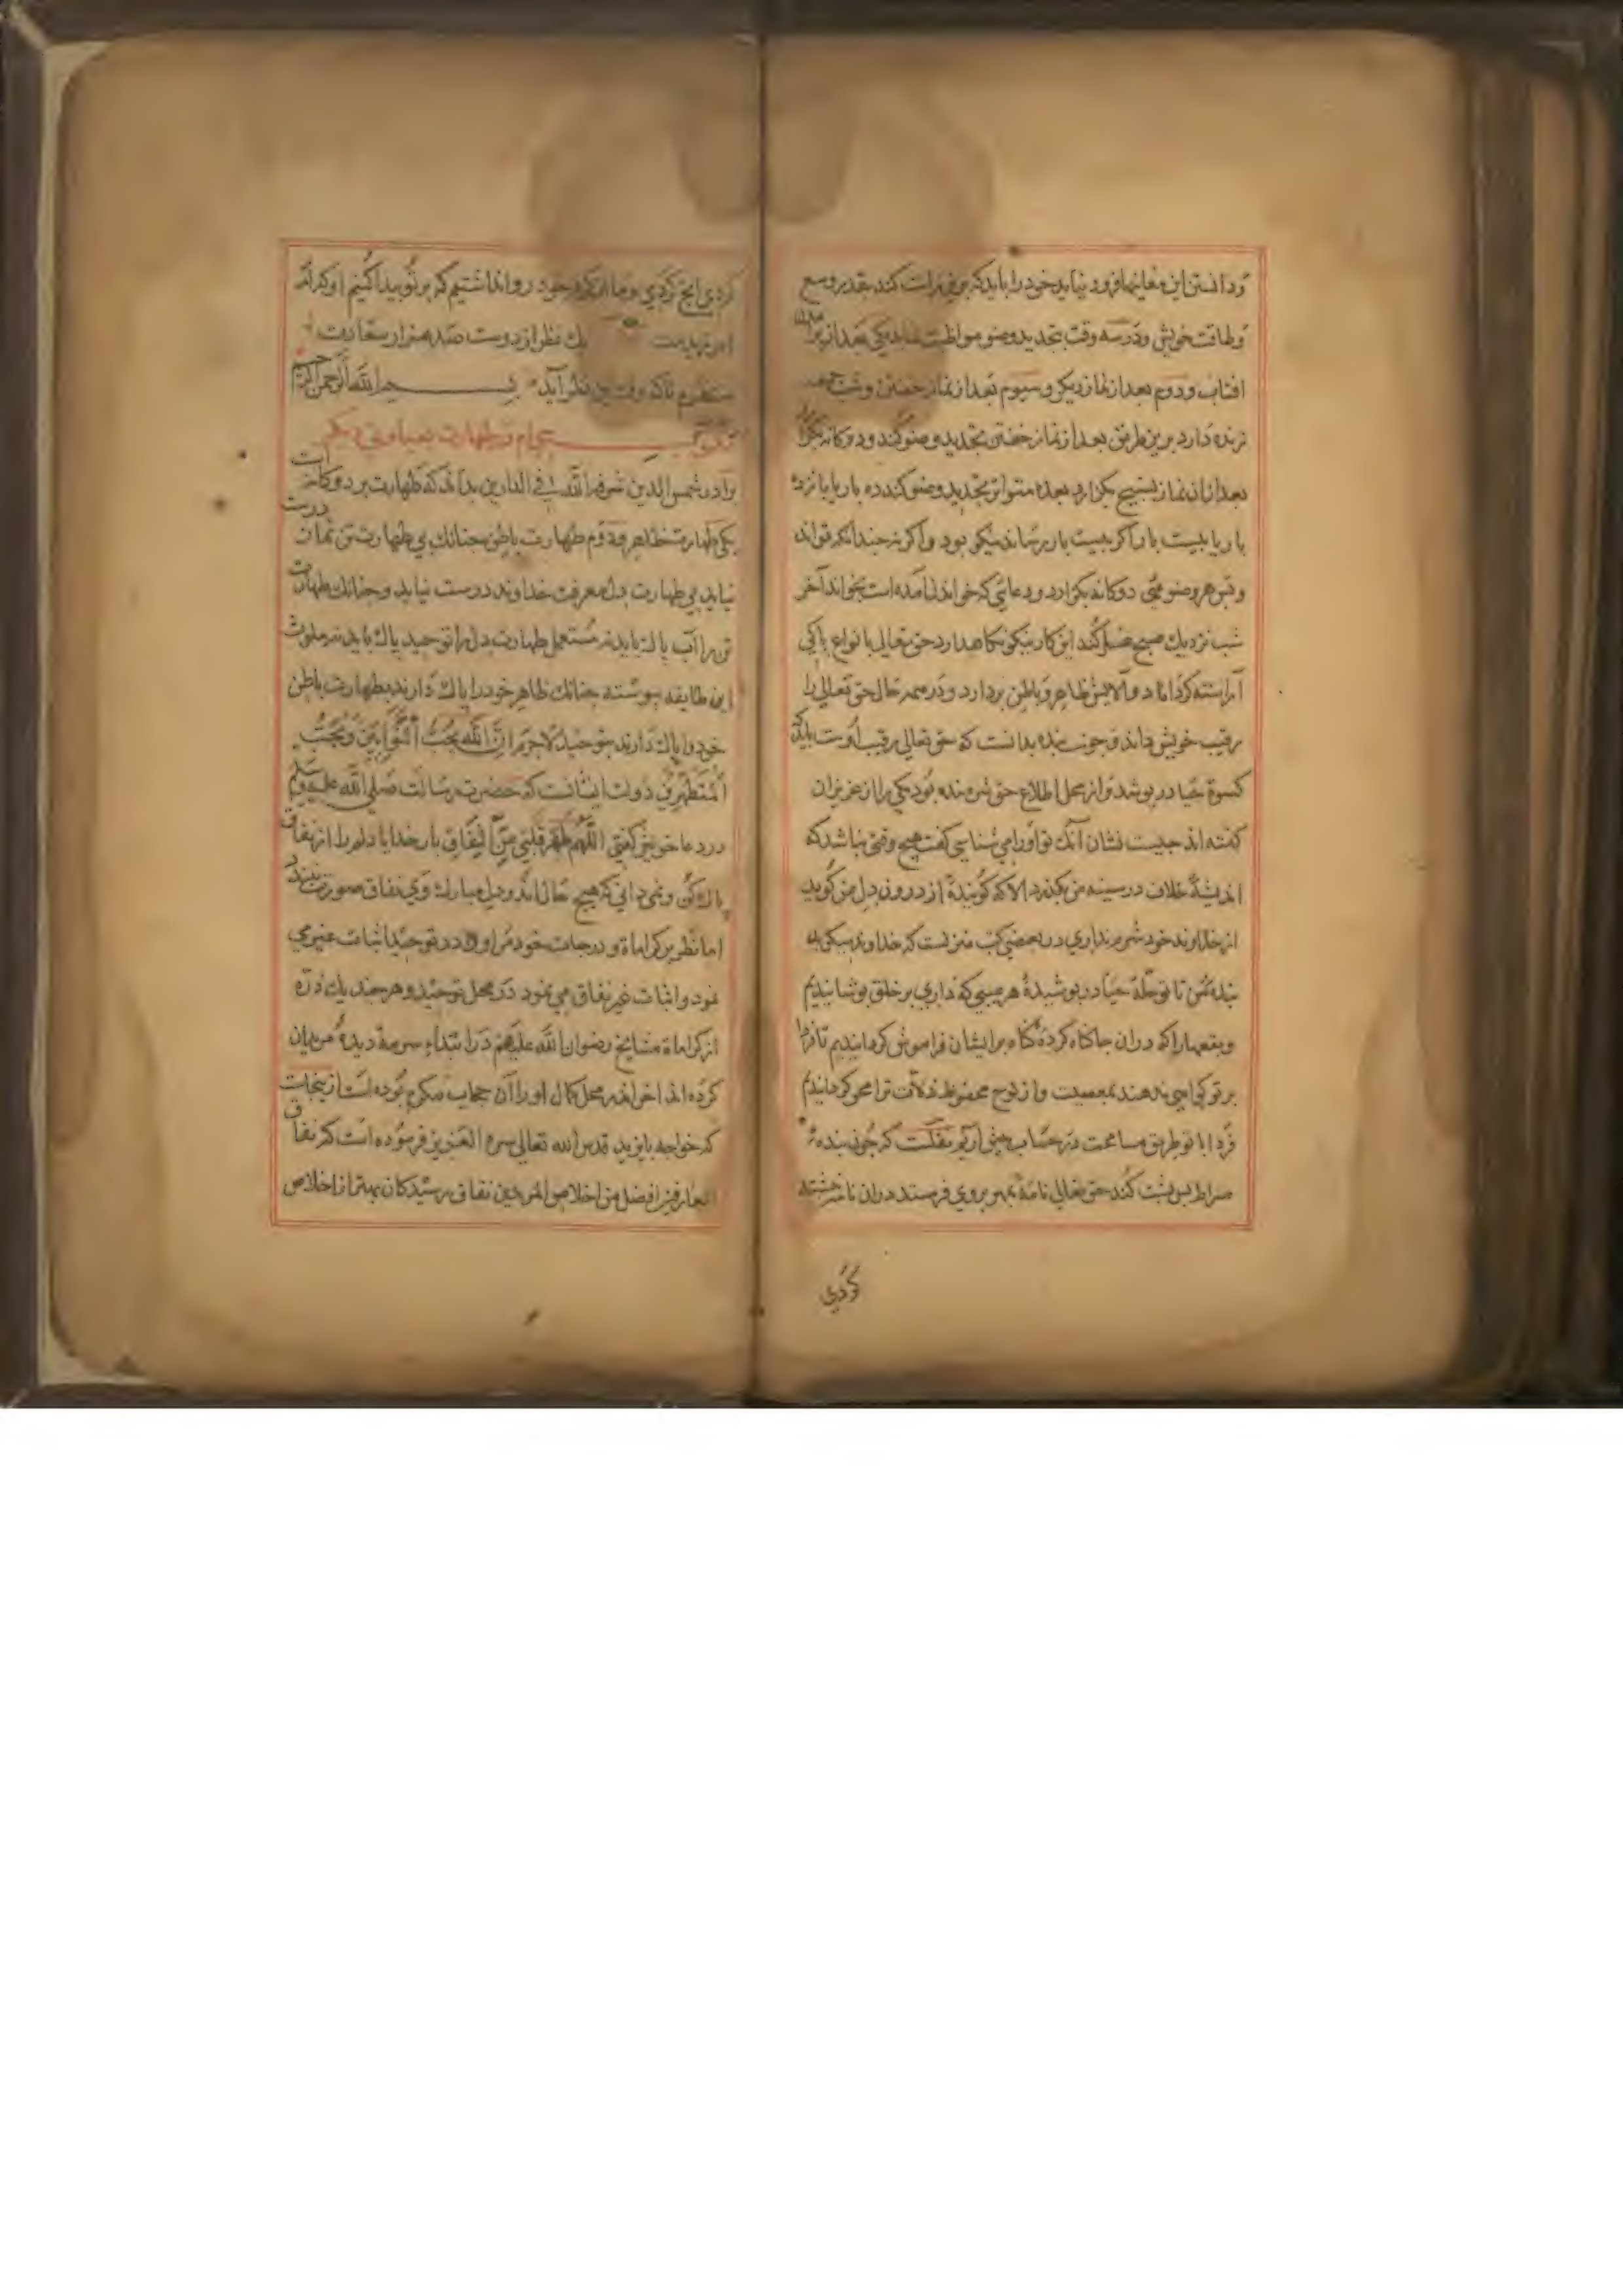 ودانستن این معاینها فرود نیاید خود را باید که کند بقدر وسع
وطاقت خویش ودر سه وقت بتجدید وضو مواظبت نماید یکی بعد از
افتاب ودوم بعد از نماز دیکر وسیوم بعد از نماز خفتن وشب
زنده دارد برین طریق بعد از نماز خفتن تجدید وضو کند ودوکانه
بعد ازان نماز تسبیح بکزارد بعده متواتر تجدید وضو کند ده بار یا پانزده
بار یا بیست بار اکر بیست بار برساند نیکو بود واکر نه چندانکه تواند
وبهر وضوئی دوکانه بکزارد ودعائی که خواندن آمده است بخواند آخر
شب نزدیك صبح غسل کند این کار نیکو نکاهدارد حق تعالی بانواع پاکی
آراسته کرداند والایش ظاهر وباطن بردارد ودر همه حال حق تعالی را
رقیب خویش داند وچون بنده بدانست که حق تعالی رقیب اوست باید که
کسوة حیا در پوشد واز محل اطلاع حق شرمنده بود یکی را از عزیزان
کفته اند چیست نشان آنك تو او را می شناسی کفت هیچ وقتی نباشد که
اندیشهٔ خلاف در سینه من بکذرد الا که کویندهٔ از درون دل من کوید
از خداوند خود شرم نداری در بعضی کتب منزلست که خداوند میکوید
بندهٔ من تا تو حلهٔ حیا در پوشیدهٔ هر عیبی که داری بر خلق پوشانیدیم
وبقعها را که دران جا کناه کردهٔ کناه برایشان فراموش کردانیدیم تا فردا
بر تو کواهی ندهند بمعصیت واز لوح محفوظ زلات ترا محو کردانیدیم
فردا با تو طریق مسامحت در حساب نقلست که چون بنده
صراط پس پشت کند حق تعالی نامهٔ بمهر بروی فرستد دران نامه نبشته
کردی
کردی انج کردی وما از کرم خود روا نداشتیم که بر تو پیدا کنیم او کذر که
امرزیدمت یك نظر از دوست صد هزار سعادت
منتظرم تا که وقت نظر آید بسم الله الرحمن الرحیم
مکتوب در طهارت بعبارتی دیکر
برادر شمس الدین شرفه الله فی الدارین بداند که طهارت بر دو کانه است
یکی طهارت ظاهر ودوم طهارت باطن چنانك بی طهارت تن نماز درست
نیاید بی طهارت دل معرفت خداوند درست نیاید وچنانك طهارت
تن را آب پاك باید نه مستعمل طهارت دل را توحید پاك باید نه ملوث
این طایفه پیوسته چنانك ظاهر خود را پاك دارند بطهارت باطن
خود را پاك دارند بتوحید لاجرم ان الله یحب التوابین ویحب
المتطهرین دولت ایشانست که حضرت رسالت صلی الله علیه وسلم
در دعا خویش کفتی اللهم طهر قلبی من النفاق بار خدایا دلم را از نفاق
پاك کن ونمی دانی که هیچ حال اندر دل مبارك وی نفاق صورت نبندد
اما نظر بر کراماة ودرجات خود مر او را در توحید اثبات غیر می
نمود واثبات غیر نفاق می نمود در محل توحید وهر چند یك ذره
از کراماة مشایخ رضوان الله علیهم در ابتداء سرمهٔ دیدهٔ مریدان
کرده اند اخر اندر محل کمال او را آن حجاب مکرم بوده است ازینجاست
که خواجه بایزید قدس الله تعالی سره العزیز فرموده است که نفاق
العارفین افضل من اخلاص المریدین نفاق رسیدکان بهتر از اخلاص